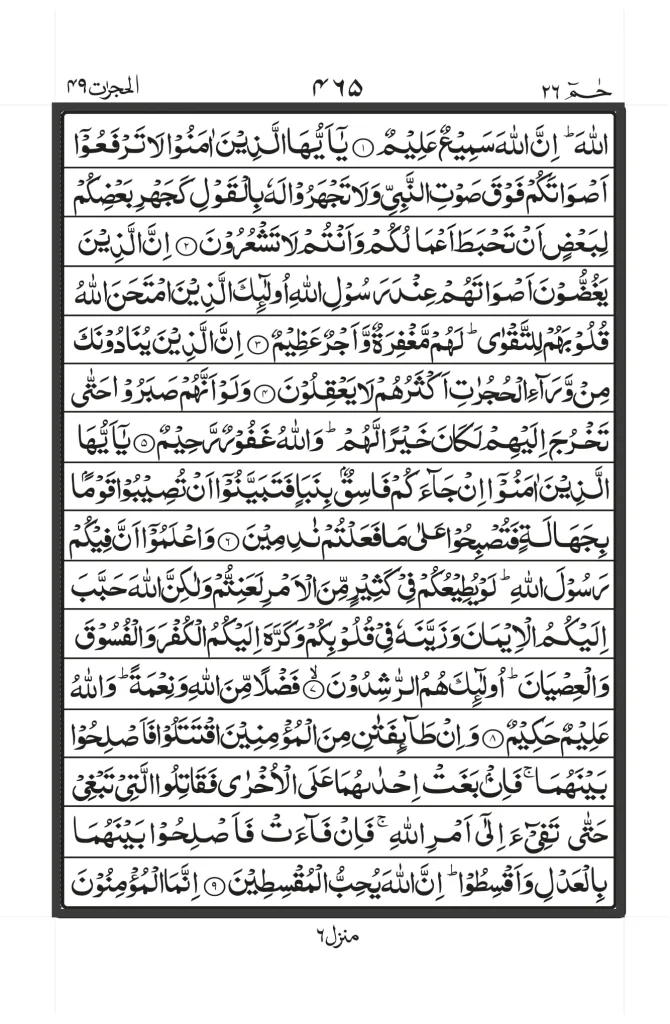 حٰمٓ ٢٦ ۴٦۵ الحجرٰت ۴٩
اللّٰهَ ؕ اِنَّ اللّٰهَ سَمِيْعٌ عَلِيْمٌ ۝۱ يٰۤاَيُّهَا الَّذِيْنَ اٰمَنُوْا لَا تَرْفَعُوْۤا
اَصْوَاتَكُمْ فَوْقَ صَوْتِ النَّبِيِّ وَلَا تَجْهَرُوْا لَهٗ بِالْقَوْلِ كَجَهْرِ بَعْضِكُمْ
لِبَعْضٍ اَنْ تَحْبَطَ اَعْمَا لُكُمْ وَاَنْتُمْ لَا تَشْعُرُوْنَ ۝۲ اِنَّ الَّذِيْنَ
يَغُضُّوْنَ اَصْوَاتَهُمْ عِنْدَ رَسُوْلِ اللّٰهِ اُولٰٓئِكَ الَّذِيْنَ امْتَحَنَ اللّٰهُ
قُلُوْبَهُمْ لِلتَّقْوٰى ؕ لَهُمْ مَّغْفِرَةٌ وَّاَجْرٌ عَظِيْمٌ ۝۳ اِنَّ الَّذِيْنَ يُنَادُوْنَكَ
مِنْ وَّرَآءِ الْحُجُرٰتِ اَكْثَرُهُمْ لَا يَعْقِلُوْنَ ۝۴ وَلَوْ اَنَّهُمْ صَبَرُوْا حَتّٰى
تَخْرُجَ اِلَيْهِمْ لَكَانَ خَيْرًا لَّهُمْ ؕ وَاللّٰهُ غَفُوْرٌ رَّحِيْمٌ ۝۵ يٰۤاَيُّهَا
الَّذِيْنَ اٰمَنُوْۤا اِنْ جَآءَكُمْ فَاسِقٌۢ بِنَبَاٍ فَتَبَيَّنُوْۤا اَنْ تُصِيْبُوْا قَوْمًۢا
بِجَهَالَةٍ فَتُصْبِحُوْا عَلٰى مَا فَعَلْتُمْ نٰدِمِيْنَ ۝۶ وَاعْلَمُوْۤا اَنَّ فِيْكُمْ
رَسُوْلَ اللّٰهِ ؕ لَوْ يُطِيْعُكُمْ فِيْ كَثِيْرٍ مِّنَ الْاَمْرِ لَعَنِتُّمْ وَلٰكِنَّ اللّٰهَ حَبَّبَ
اِلَيْكُمُ الْاِيْمَانَ وَزَيَّنَهٗ فِيْ قُلُوْبِكُمْ وَكَرَّهَ اِلَيْكُمُ الْكُفْرَ وَالْفُسُوْقَ
وَالْعِصْيَانَ ؕ اُولٰٓئِكَ هُمُ الرّٰشِدُوْنَ ۙ۝۷ فَضْلًا مِّنَ اللّٰهِ وَنِعْمَةً ؕ وَاللّٰهُ
عَلِيْمٌ حَكِيْمٌ ۝۸ وَاِنْ طَآئِفَتٰنِ مِنَ الْمُؤْمِنِيْنَ اقْتَتَلُوْا فَاَصْلِحُوْا
بَيْنَهُمَا ۚ فَاِنْۢ بَغَتْ اِحْدٰىهُمَا عَلَى الْاُخْرٰى فَقَاتِلُوا الَّتِيْ تَبْغِيْ
حَتّٰى تَفِيْٓءَ اِلٰٓى اَمْرِ اللّٰهِ ۚ فَاِنْ فَآءَتْ فَاَصْلِحُوْا بَيْنَهُمَا
بِالْعَدْلِ وَاَقْسِطُوْا ؕ اِنَّ اللّٰهَ يُحِبُّ الْمُقْسِطِيْنَ ۝۹ اِنَّمَا الْمُؤْمِنُوْنَ
منزل ٦